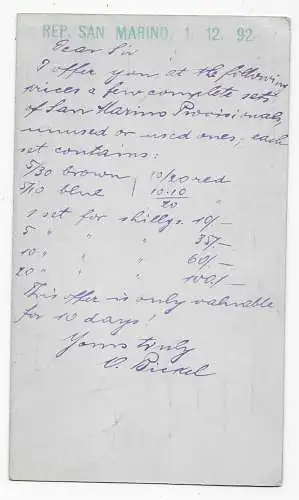 REP. SAN MARINO, 1. 12. 92.
Dear Sir
I offer you at the following
prices a few complete sets
of San Marino Provisionals,
unused or used ones; each
set contains:
5/30 brown } 10/20 red
5/10 blue } 10.10/20 "
1 set for shillgs. 10/-
5 " " " 35/-
10 " " " 60/-
20 " " " 100/-
This offer is only valuable
for 10 days!
Yours truly
O. Bickel